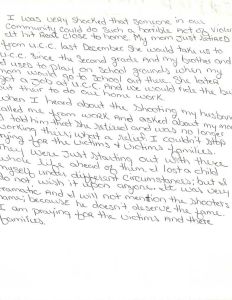 I was very shocked that someone in our
Community could do such a horrible Act of Violen
it hit Real close to home. My mom Just retired
from U.C.C. last December she would take us to
U.C.C. Since the Second grade And my brother and
I would play on School grounds when my
mom would go to Class and then She
got a job at U.C.C. And we would ride the bus
out their to do our home work.
When I heard about the Shooting my husband
called me from work And asked about my mom
I told him that she retired and was no longer
working thier; what a relief I couldn't stop
crying for the Victims & Victims families.
They were Just starting out with there
whole life ahead of them. I lost a child
myself under different circumstances; but I
do not wish it upon anyone. It was very
traumatic And I will not mention the Shooters
name; because he doesn't deserve the fame.
I am praying for the Victims And there
families.